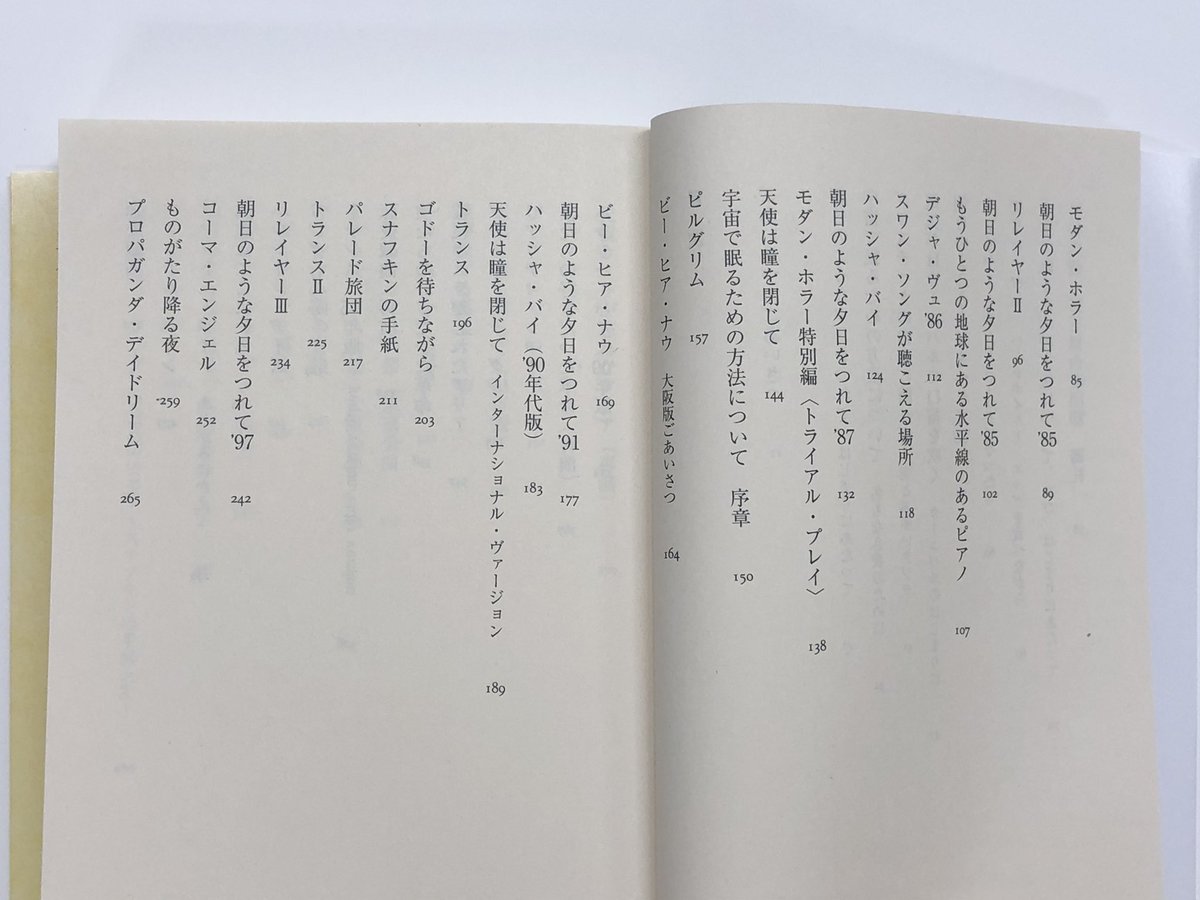 モダン・ホラー 85
朝日のような夕日をつれて'85 89
リレイヤーⅡ 96
朝日のような夕日をつれて'85 102
もうひとつの地球にある水平線のあるピアノ 107
デジャ・ヴュ'86 112
スワン・ソングが聴こえる場所 118
ハッシャ・バイ 124
朝日のような夕日をつれて'87 132
モダン・ホラー特別編〈トライアル・プレイ〉 138
天使は瞳を閉じて 144
宇宙で眠るための方法について 序章 150
ピルグリム 157
ビー・ヒア・ナウ 大阪版ごあいさつ 164
ビー・ヒア・ナウ 169
朝日のような夕日をつれて'91 177
ハッシャ・バイ（'90年代版） 183
天使は瞳を閉じて インターナショナル・ヴァージョン 189
トランス 196
ゴドーを待ちながら 203
スナフキンの手紙 211
パレード旅団 217
トランスⅡ 225
リレイヤーⅢ 234
朝日のような夕日をつれて'97 242
コーマ・エンジェル 252
ものがたり降る夜 259
プロパガンダ・デイドリーム 265